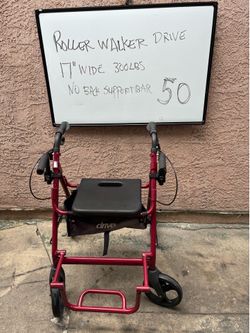 ROLLER WALKER DRIVE
17" WIDE 300LBS
NO BACK SUPPORT BAR 50
drive